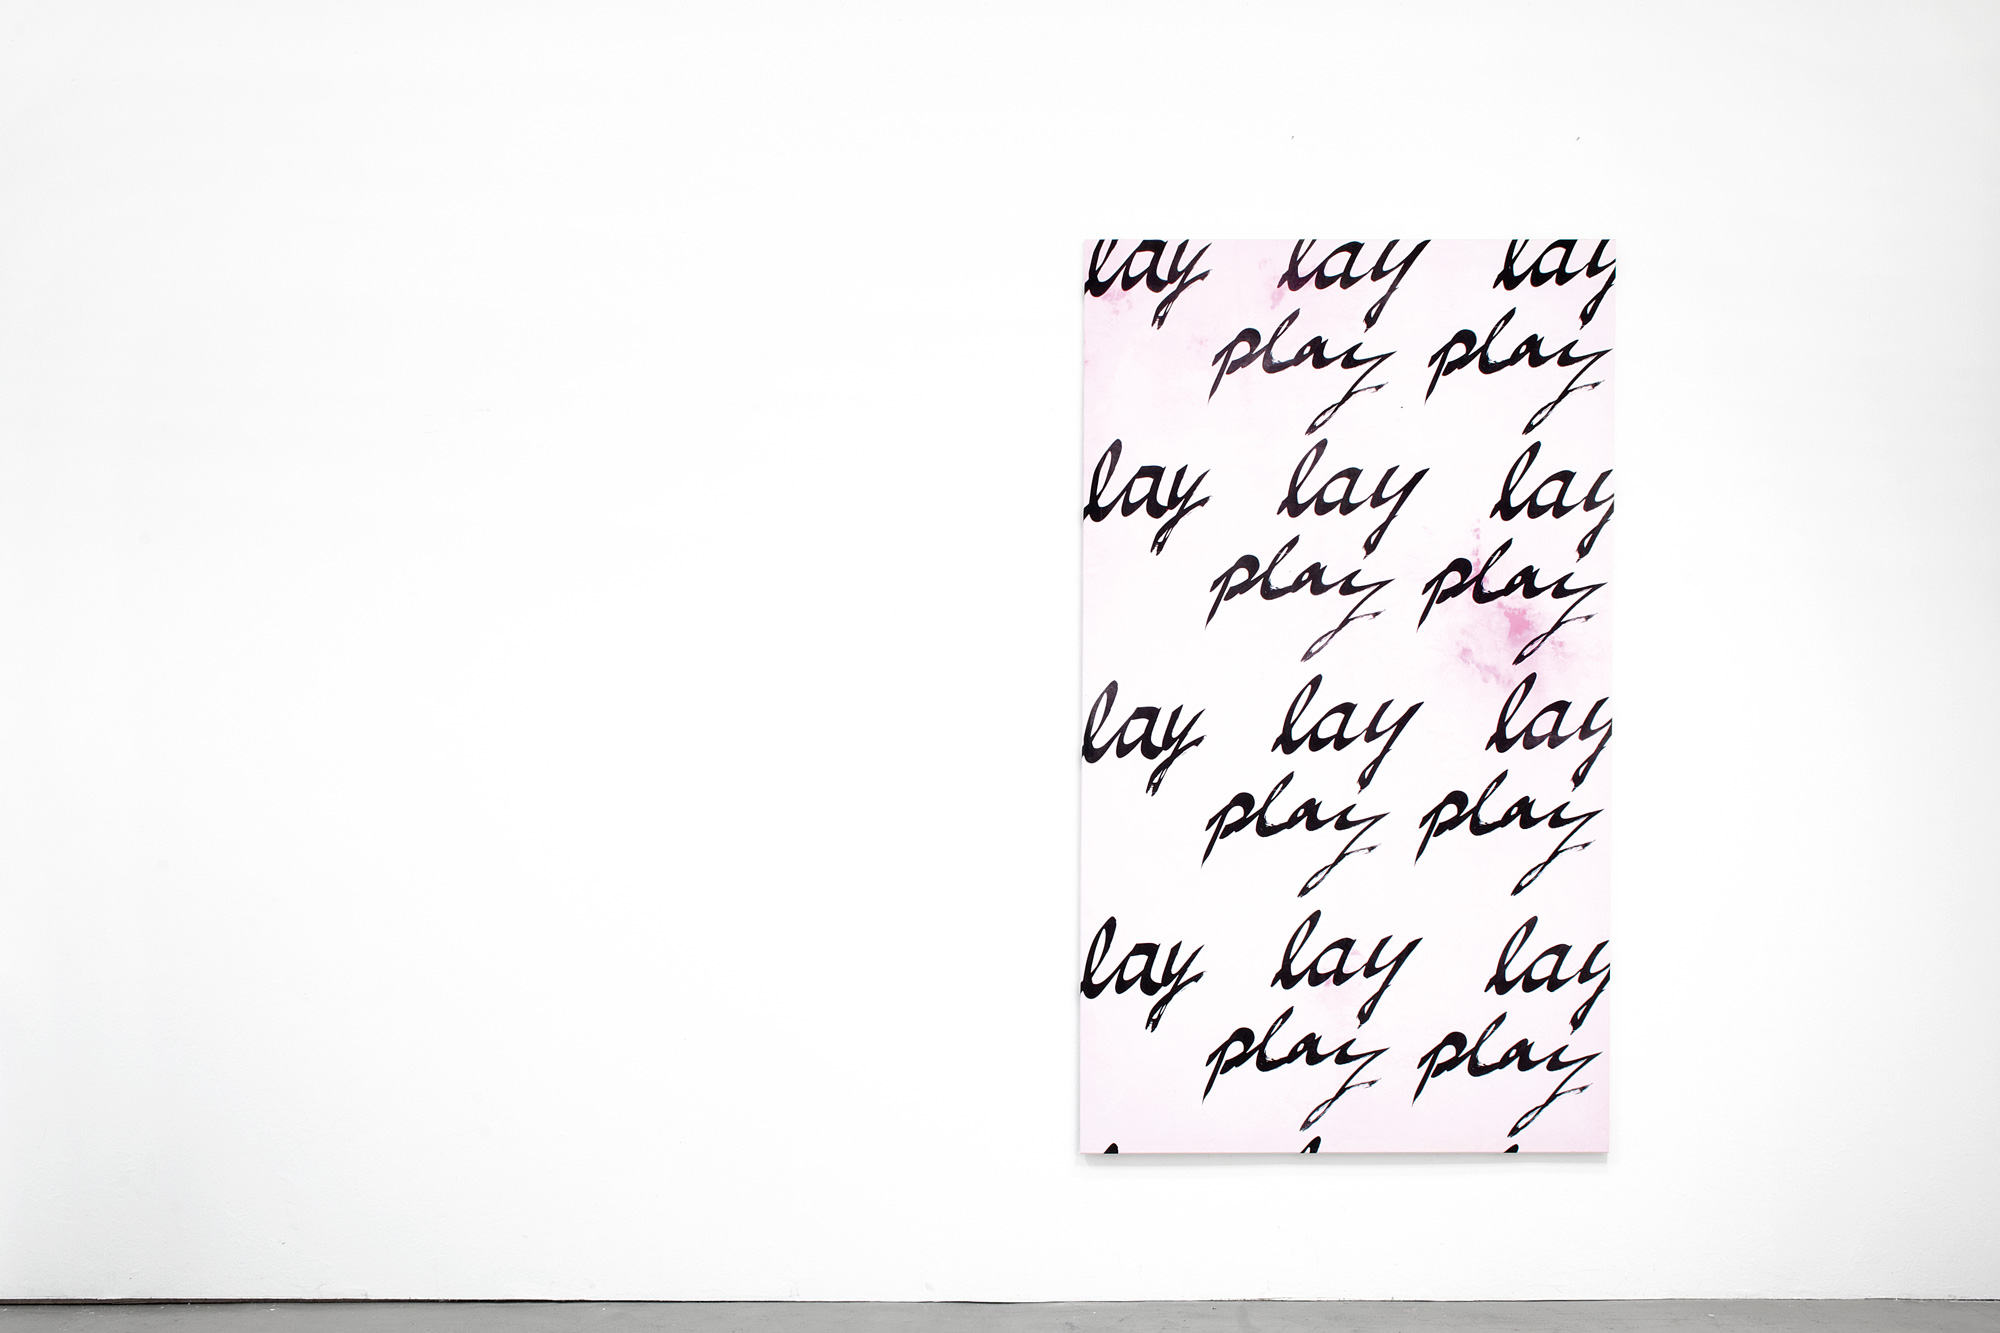 lay lay lay
play play
lay lay lay
play play
lay lay lay
play play
lay lay lay
play play